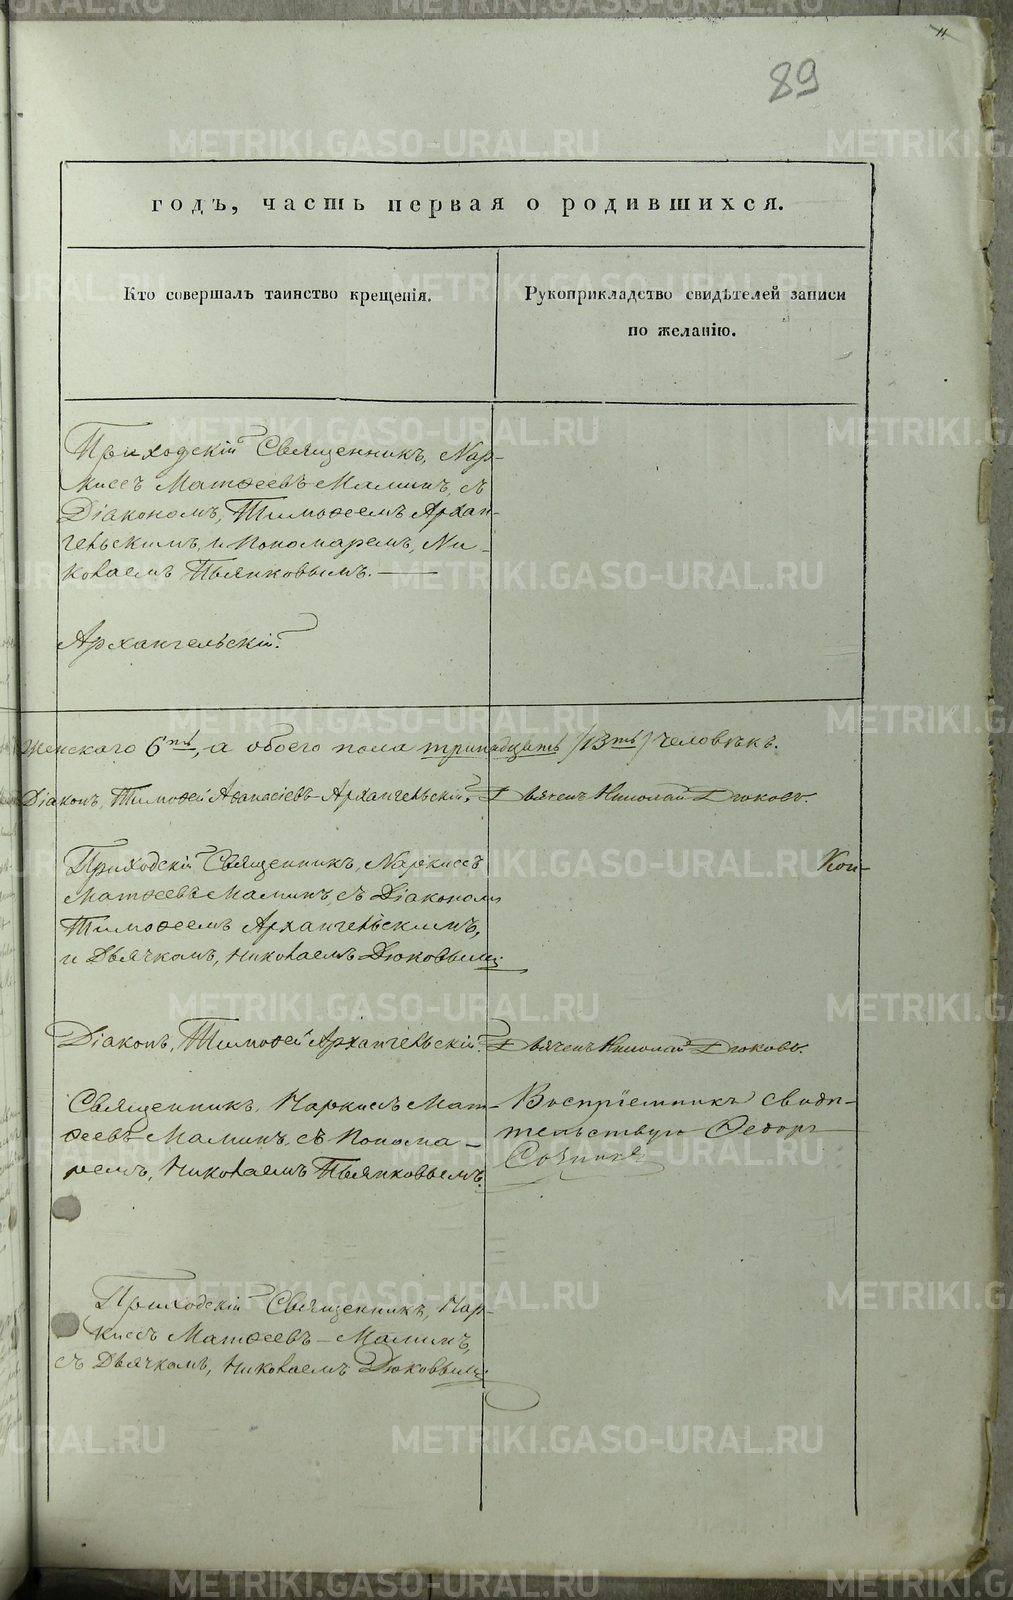 89
годъ, часть первая о родившихся.
Кто совершалъ таинство крещенія.
Рукоприкладство свидѣтелей записи
по желанію.
Приходскій Священникъ, Нар-
киссъ Матѳеевъ Маминъ, съ
Діакономъ, Тимоѳеемъ Архан-
гельскимъ, и Пономаремъ, Ни-
колаемъ Пьянковымъ.
Архангельскій.
Женскаго 6ть, а обоего пола тринадцать /13ть/ человѣкъ.
Діаконъ, Тимоѳей Аѳанасіевъ Архангельскій. Дьячекъ Николай Дюковъ.
Приходскій Священникъ, Наркиссъ
Матѳеевъ Маминъ, съ Діакономъ
Тимоѳеемъ Архангельскимъ,
и Дьячкомъ, Николаемъ Дюковымъ
Кон-
Діаконъ, Тимоѳей Архангельскій. Дьячекъ Николай Дюковъ.
Священникъ, Наркиссъ Мат-
ѳеевъ Маминъ, съ Понома-
ремъ, Николаемъ Пьянковымъ.
Воспріемникъ свиде-
тельствую Ѳедоръ
Приходскій Священникъ, Нар-
киссъ Матѳеевъ Маминъ,
съ Дьячкомъ, Николаемъ Дюковымъ
METRIKI.GASO-URAL.RU